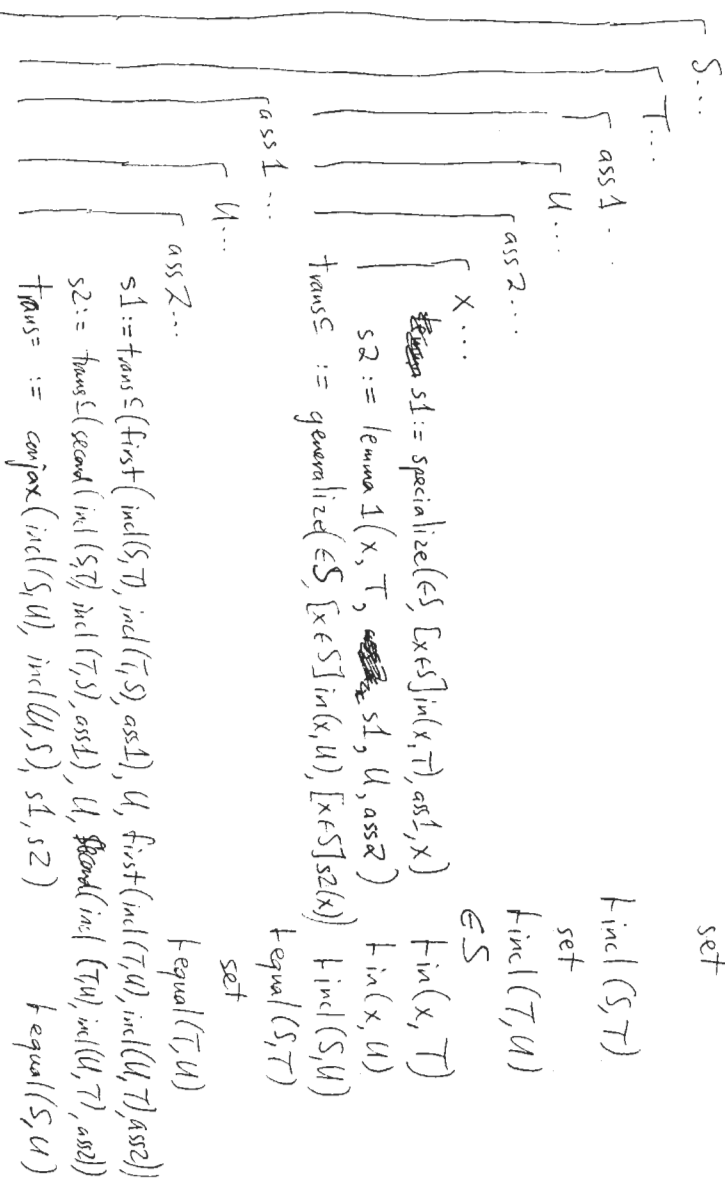 S... set
T...
ass 1... ⊢incl(S,T)
U... set
ass 2... ⊢incl(T,U)
x... ∈S
s1 := specialize(∈S, [x∈S]in(x,T), ass1, x) ⊢in(x,T)
s2 := lemma 1(x, T, s1, U, ass2) ⊢in(x,U)
trans⊆ := generalize(∈S, [x∈S]in(x,U), [x∈S]s2(x)) ⊢incl(S,U)
ass 1... ⊢equal(S,T)
U... set
ass 2... ⊢equal(T,U)
s1:=trans⊆(first(incl(S,T), incl(T,S), ass1), U, first(incl(T,U), incl(U,T), ass2))
s2:= trans⊆(second(incl(S,T), incl(T,S), ass1), U, second(incl(T,U), incl(U,T), ass2))
trans= := conjax(incl(S,U), incl(U,S), s1, s2) ⊢equal(S,U)